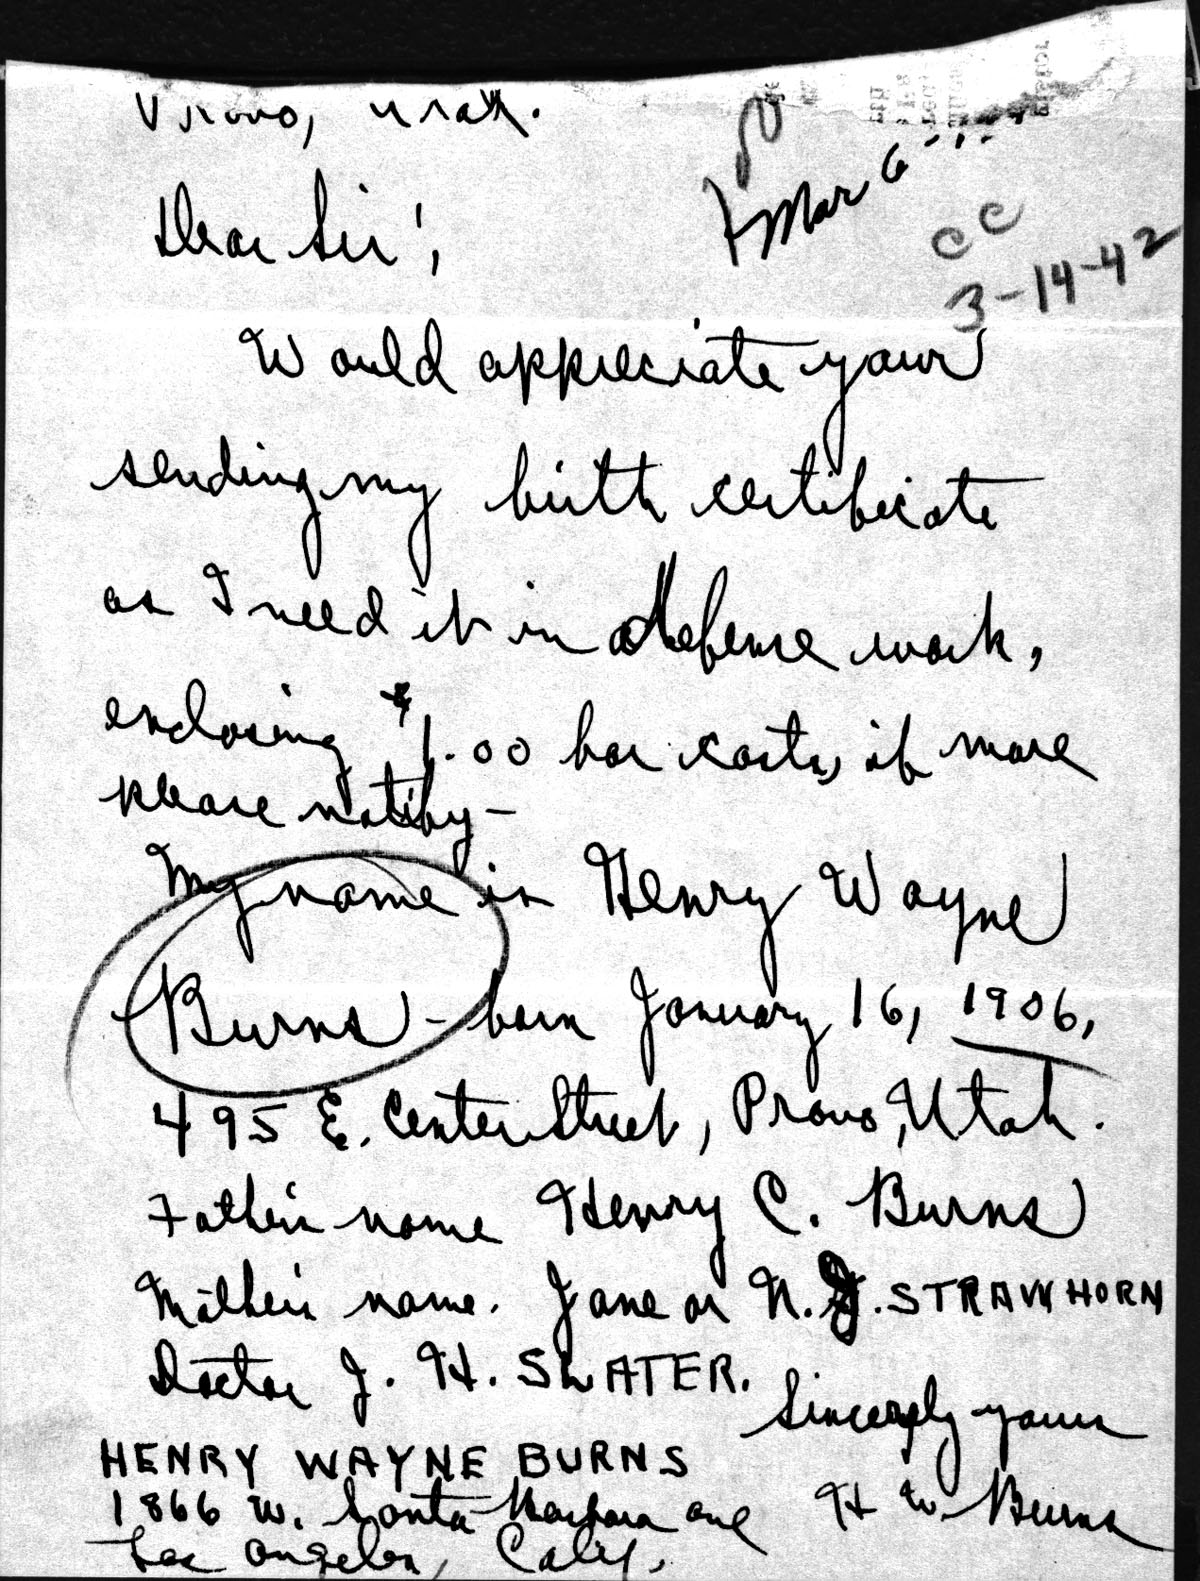 Provo, Utah.
Mar 6
cc
3-14-42
Dear Sir;
Would appreciate your
sending my birth certificate
as I need it in defense work,
enclosing $1.00 for costs, if more
please notify—
My name is Henry Wayne
Burns - born January 16, 1906,
495 E. Center Street, Provo, Utah.
Father's name Henry C. Burns
Mother's name. Jane or N. J. STRAWHORN
Doctor J. H. SLATER.
Sincerely yours
HENRY WAYNE BURNS
H W Burns
1866 W. Santa Barbara ave
Los Angeles, Calif.